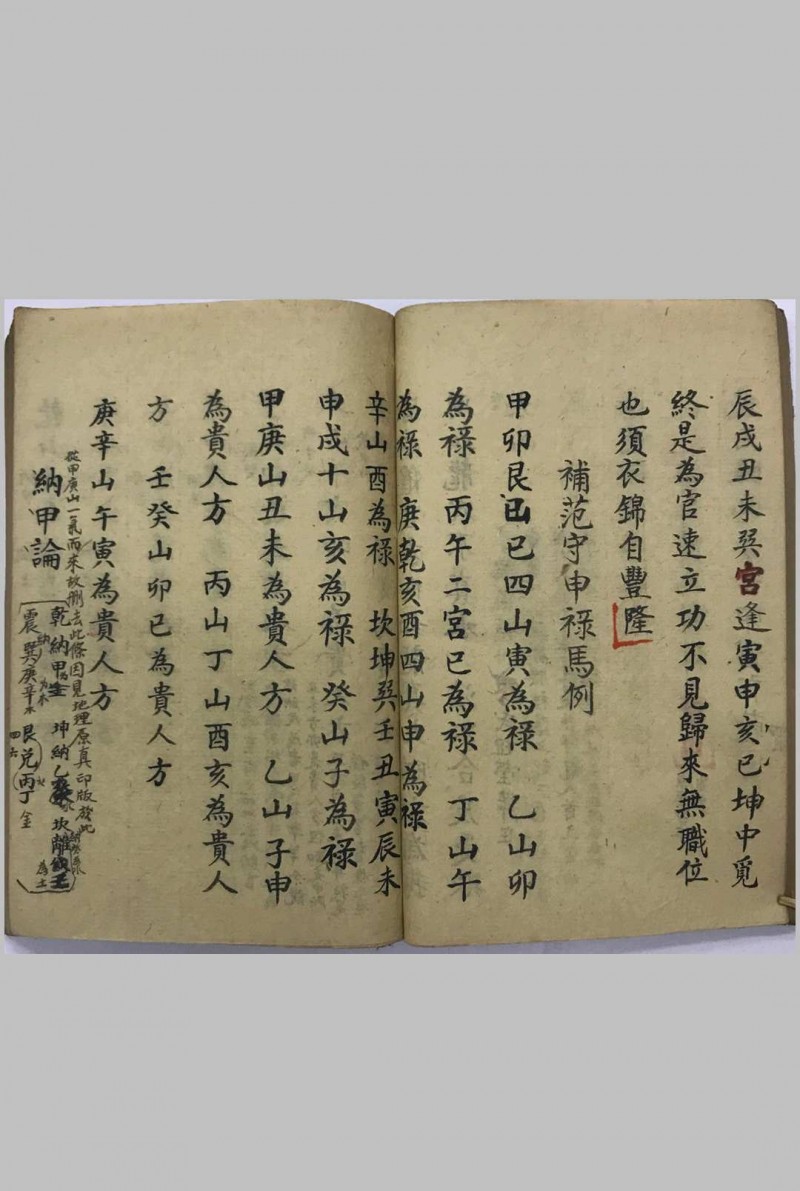 辰戌丑未巽宮逢寅申亥巳坤中覓
終是為官速立功不見歸來無職位
也須衣錦自豐隆
補范守申禄馬例
甲卯艮巳四山寅為禄 乙山卯
為禄 丙午二宮巳為禄 丁山午
為禄 庚乾亥酉四山申為禄
辛山酉為禄 坎坤巽壬丑寅辰未
申戌十山亥為禄 癸山子為禄
甲庚山丑未為貴人方 乙山子申
為貴人方 丙山丁山酉亥為貴人
方 壬癸山卯巳為貴人方
庚辛山午寅為貴人方
從甲庚山一氣而來故刪去此條因見地理原真印版發此
納甲論
乾納甲 坤納乙 坎離
震納巽庚辛木 艮兌丙丁 金